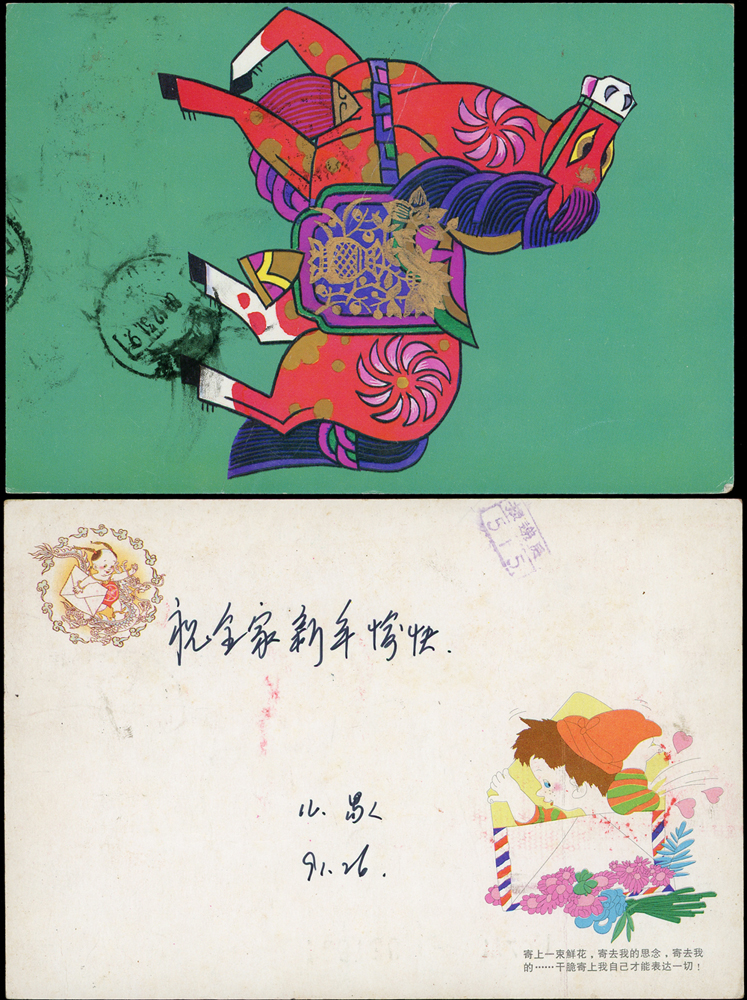 祝全家新年愉快.
91.26.
寄上一束鲜花，寄去我的思念，寄去我
的……干脆寄上我自己才能表达一切！